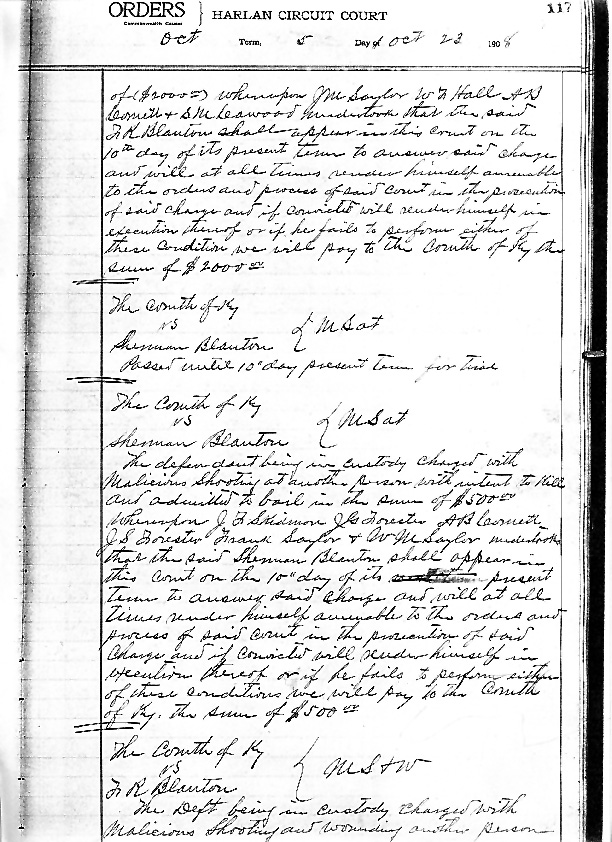 ORDERS } HARLAN CIRCUIT COURT 117
Commonwealth Causes
Oct Term, 5 Day of Oct 23 1908
of ($200000) whereupon J M Saylor W F Hall A B
Cornett & S M Cawood undertook that the said
F R Blanton shall appear in this Court on the
10th day of its present term to answer said charge
and will at all times render himself amenable
to the orders and process of said Court in the prosecution
of said charge and if convicted will render himself in
execution thereof or if he fails to perform either of
these condition we will pay to the Comth of Ky the
sum of $200000
The Comth of Ky
VS { M S at
Sherman Blanton
Passed until 10" day present term for trial
The Comth of Ky
VS { M S at
Sherman Blanton
The defendant being in custody charged with
Malicious Shooting at another person with intent to kill
and admitted to bail in the sum of $50000
Whereupon J F Skidmon J G Forester A B Cornett
J S Forester Frank Saylor & W M Saylor undertook
that the said Sherman Blanton shall appear in
this Court on the 10" day of its present
term to answer said charge and will at all
times render himself amenable to the orders and
process of said Court in the prosecution of said
Charge and if convicted will render himself in
execution thereof or if he fails to perform either
of these conditions we will pay to the Comth
of Ky. the sum of $50000
The Comth of Ky
VS { M S & W
F R Blanton
The Deft being in custody charged with
Malicious Shooting and wounding another person